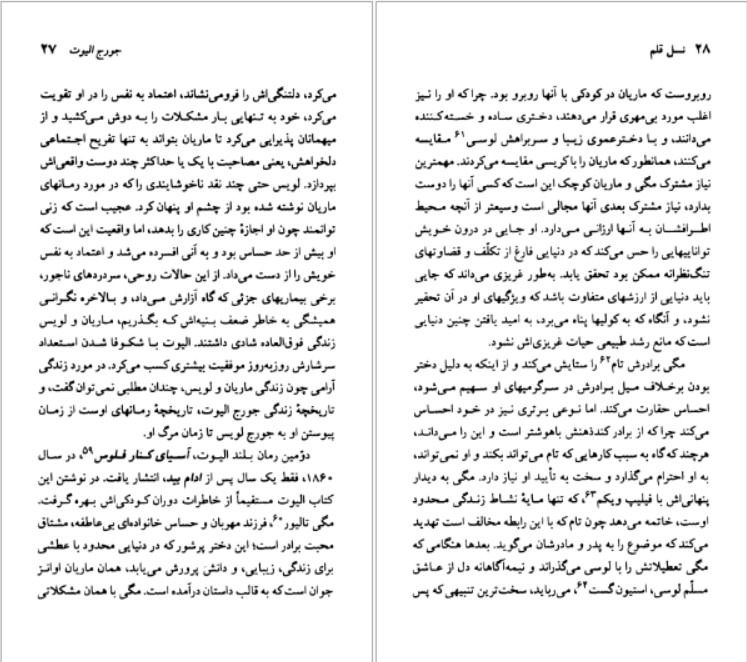 جورج الیوت ۲۷
می‌کرد، دلتنگی‌اش را فرومی‌نشاند، اعتماد به نفس را در او تقویت
می‌کرد، خود به تنهایی بار مشکلات را به دوش می‌کشید و از
میهمانان پذیرایی می‌کرد تا ماریان بتواند به تنها تفریح اجتماعی
دلخواهش، یعنی مصاحبت با یک یا حداکثر چند دوست واقعی‌اش
بپردازد. لویس حتی چند نقد ناخوشایندی را که در مورد رمانهای
ماریان نوشته شده بود از چشم او پنهان کرد. عجیب است که زنی
توانمند چون او اجازهٔ چنین کاری را بدهد، اما واقعیت این است که
او بیش از حد حساس بود و به آنی افسرده می‌شد و اعتماد به نفس
خویش را از دست می‌داد. از این حالات روحی، سردردهای ناجور،
برخی بیماریهای جزئی که گاه آزارش می‌داد، و بالاخره نگرانی
همیشگی به خاطر ضعف بنیه‌اش که بگذریم، ماریان و لویس
زندگی فوق‌العاده شادی داشتند. الیوت با شکوفا شدن استعداد
سرشارش روزبه‌روز موفقیت بیشتری کسب می‌کرد. در مورد زندگی
آرامی چون زندگی ماریان و لویس، چندان مطلبی نمی‌توان گفت، و
تاریخچهٔ زندگی جورج الیوت، تاریخچهٔ رمانهای اوست از زمان
پیوستن او به جورج لویس تا زمان مرگ او.
دوّمین رمان بلند الیوت، آسیای کنار فلوس۵۹، در سال
۱۸۶۰، فقط یک سال پس از ادام بید، انتشار یافت. در نوشتن این
کتاب الیوت مستقیماً از خاطرات دوران کودکی‌اش بهره گرفت.
مگی تالیور۶۰، فرزند مهربان و حساس خانواده‌ای بی‌عاطفه، مشتاق
محبت برادر است؛ این دختر پرشور که در دنیایی محدود با عطشی
برای زندگی، زیبایی، و دانش پرورش می‌یابد، همان ماریان اوانز
جوان است که به قالب داستان درآمده است. مگی با همان مشکلاتی
۲۸ نسل قلم
روبروست که ماریان در کودکی با آنها روبرو بود. چرا که او را نیز
اغلب مورد بی‌مهری قرار می‌دهند، دختری ساده و خسته‌کننده
می‌دانند، و با دخترعموی زیبا و سربراهش لوسی۶۱ مقایسه
می‌کنند، همانطور که ماریان را با کریسی مقایسه می‌کردند. مهمترین
نیاز مشترک مگی و ماریان کوچک این است که کسی آنها را دوست
بدارد، نیاز مشترک بعدی آنها مجالی است وسیعتر از آنچه محیط
اطرافشان به آنها ارزانی می‌دارد. او جایی در درون خویش
تواناییهایی را حس می‌کند که در دنیایی فارغ از تکلّف و قضاوتهای
تنگ‌نظرانه ممکن بود تحقق یابد. به‌طور غریزی می‌داند که جایی
باید دنیایی از ارزشهای متفاوت باشد که ویژگیهای او در آن تحقیر
نشود، و آنگاه که به کولیها پناه می‌برد، به امید یافتن چنین دنیایی
است که مانع رشد طبیعی حیات غریزی‌اش نشود.
مگی برادرش تام۶۲ را ستایش می‌کند و از اینکه به دلیل دختر
بودن برخلاف میل برادرش در سرگرمیهای او سهیم می‌شود،
احساس حقارت می‌کند. اما نوعی برتری نیز در خود احساس
می‌کند چرا که از برادر کندذهنش باهوشتر است و این را می‌داند،
هرچند که گاه به سبب کارهایی که تام می‌تواند بکند و او نمی‌تواند،
به او احترام می‌گذارد و سخت به تأیید او نیاز دارد. مگی به دیدار
پنهانی‌اش با فیلیپ ویکم۶۳، که تنها مایهٔ نشاط زندگی محدود
اوست، خاتمه می‌دهد چون تام که با این رابطه مخالف است تهدید
می‌کند که موضوع را به پدر و مادرشان می‌گوید. بعدها هنگامی که
مگی تعطیلاتش را با لوسی می‌گذراند و نیمه‌آگاهانه دل از عاشق
مسلّم لوسی، استیون گست۶۴، می‌رباید، سخت‌ترین تنبیهی که پس